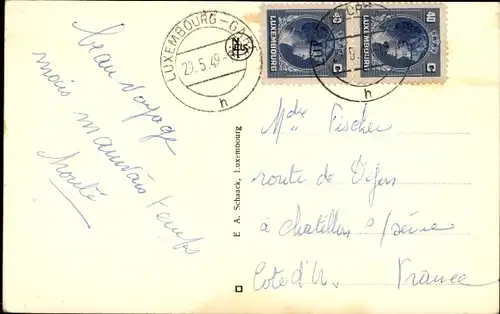 LUXEMBOURG-GARE
23.5.49
h
40
LUXEMBOURG
C
40
LUXEMBOURG
C
h
beau voyage
mais mauvais temps
E. A. Schaack, Luxembourg
Fischer
route de Dijon
à Chatillon s/seine
Cote d'Or. France